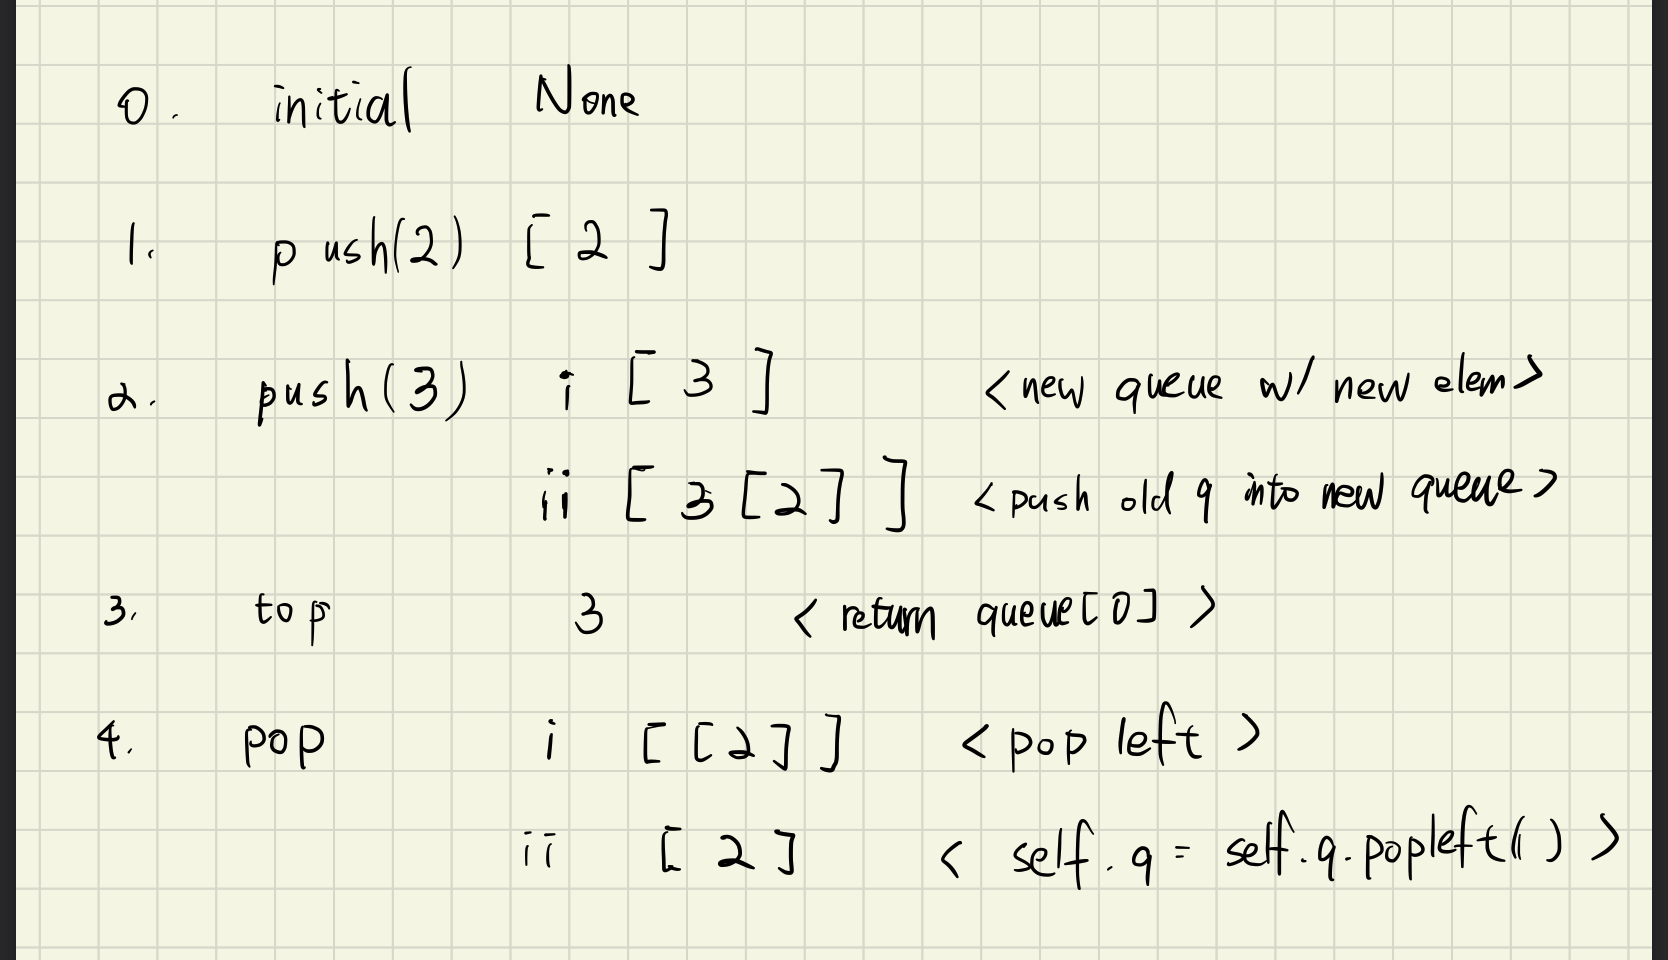 0. initial None
1. push(2) [ 2 ]
2. push(3) i [ 3 ] < new queue w/ new elem >
ii [ 3 [2] ] < push old q into new queue >
3. top 3 < return queue[0] >
4. pop i [ [2] ] < pop left >
ii [ 2 ] < self.q = self.q.popleft() >